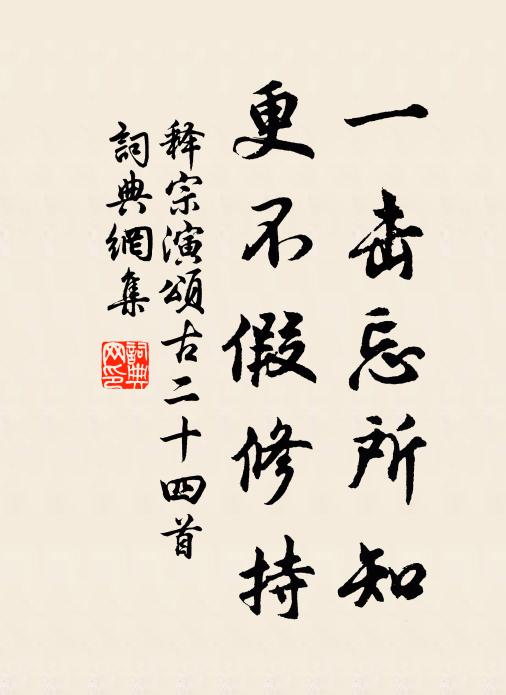 一击忘所知
更不假修持
释宗演頌古二十四首
詞典網集
詞典網印